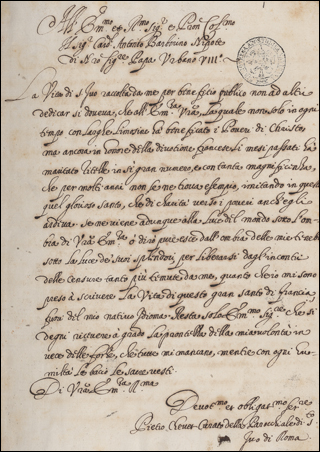 All' Em.mo et R.mo Sig.r e Pron Col.mo
Il Sig.r Card. Antonio Barberino Nipote
di N'ro Sig.re Papa Urbano VIII.
La Vita di S. Iuo raccolta da me per benefitio publico non ad altri
dedicar si doueua, che all' Em.za V'ra, la quale non solo in ogni
tempo con larghe limosine ha beneficato i Poueri di Christo
ma ancora in honore della diuotione francese li mesi passati ha
maritato Zitelle in sì gran numero, e con tanta magnificenza,
che per molti anni non se ne troua esempio, imitando in questo
quel glorioso santo, che di Carità verso i poueri anch' egli
ardiua. Se ne viene adunque alla luce del mondo sotto l'om-
bra di V'ra Em.za ò dirò pur esce dall' ombra delle mie tenebre
sotto la luce de suoi splendori, per liberarsi dagl'incontri
delle censure tanto più temute da me, quanto che io mi sono
preso à scriuere la Vita di questo gran santo di francia
fuori del mio natiuo Idioma. Resta solo Em.mo Sig.re che si
degni riceuere à grado la prontezza della mia volontà in
vece delle forze, che tutte mi mancano, mentre con ogni hu-
miltà le bacio le sacre vesti.
Di V'ra Em.za R.ma
Deuot.mo et obligat.mo Ser.re
Pietro Cheuet Curato della Parochiale di S.
Iuo di Roma.